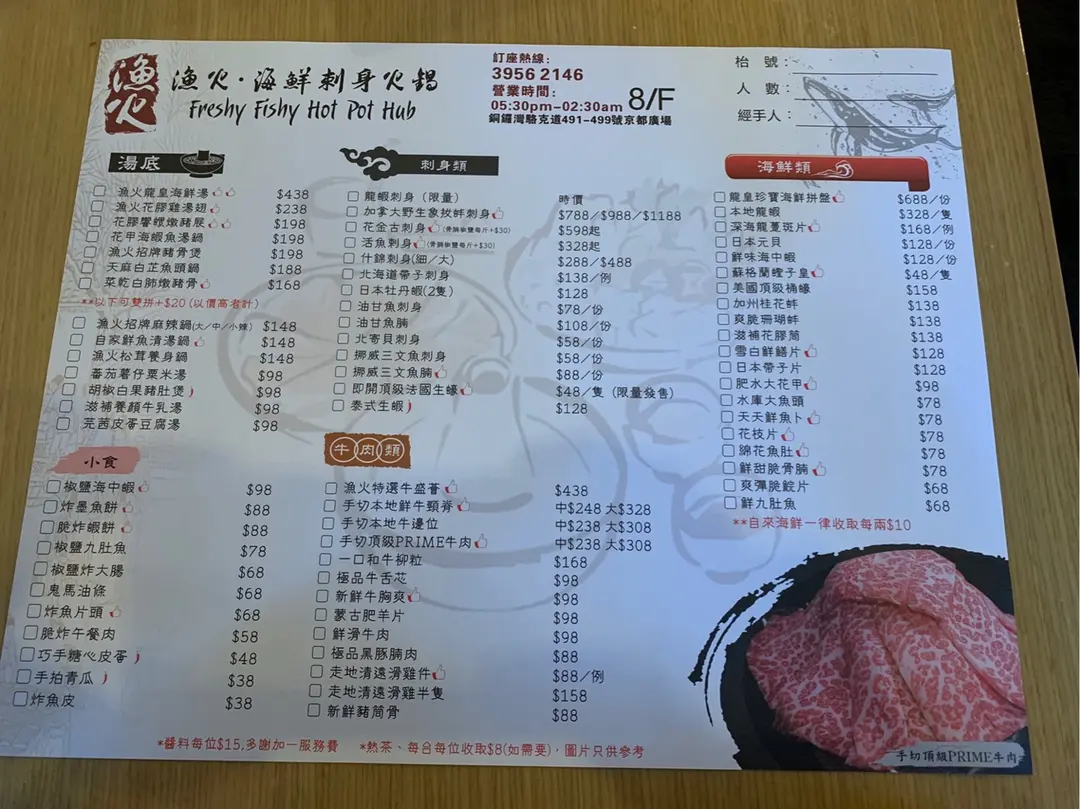 漁火
漁火·海鮮刺身火鍋
Freshy Fishy Hot Pot Hub
訂座熱線:
3956 2146
營業時間:
05:30pm-02:30am 8/F
銅鑼灣駱克道491-499號京都廣場
枱 號:
人 數:
經手人:
湯底
漁火龍皇海鮮湯 $438
漁火花膠雞湯翅 $238
花膠響螺燉豬𦟌 $198
花甲海蝦魚湯鍋 $198
漁火招牌豬骨煲 $198
天麻白芷魚頭鍋 $188
菜乾白肺燉豬骨 $168
**以下可雙拼+$20(以價高者計)
漁火招牌麻辣鍋(大/中/小辣) $148
自家鮮魚清湯鍋 $148
漁火松茸養身鍋 $148
番茄薯仔粟米湯 $98
胡椒白果豬肚煲 $98
滋補養顏牛乳湯 $98
芫茜皮蛋豆腐湯 $98
小食
椒鹽海中蝦 $98
炸墨魚餅 $88
脆炸蝦餅 $88
椒鹽九肚魚 $78
椒鹽炸大腸 $68
鬼馬油條 $68
炸魚片頭 $68
脆炸午餐肉 $58
巧手糖心皮蛋 $48
手拍青瓜 $38
炸魚皮 $38
刺身類
龍蝦刺身(限量) 時價
加拿大野生象拔蚌刺身 $788/$988/$1188
花金古刺身(骨腩椒鹽每斤+$30) $598起
活魚刺身(骨腩椒鹽每斤+$30) $328起
什錦刺身(細/大) $288/$488
北海道帶子刺身 $138/例
日本牡丹蝦(2隻) $128
油甘魚刺身 $78/份
油甘魚腩 $108/份
北寄貝刺身 $58/份
挪威三文魚刺身 $58/份
挪威三文魚腩 $88/份
即開頂級法國生蠔 $48/隻(限量發售)
泰式生蝦 $128
牛肉類
漁火特選牛盛薈 $438
手切本地鮮牛頸脊 中$248 大$328
手切本地牛邊位 中$238 大$308
手切頂級PRIME牛肉 中$238 大$308
一口和牛柳粒 $168
極品牛舌芯 $98
新鮮牛胸爽 $98
蒙古肥羊片 $98
鮮滑牛肉 $98
極品黑豚腩肉 $88
走地清遠滑雞件 $88/例
走地清遠滑雞半隻 $158
新鮮豬筒骨 $88
海鮮類
龍皇珍寶海鮮拼盤 $688/份
本地龍蝦 $328/隻
深海龍躉斑片 $168/例
日本元貝 $128/份
鮮味海中蝦 $128/份
蘇格蘭蟶子皇 $48/隻
美國頂級桶蠔 $158
加州桂花蚌 $138
爽脆珊瑚蚌 $138
滋補花膠筒 $138
雪白鮮鱔片 $128
日本帶子片 $128
肥水大花甲 $98
水庫大魚頭 $78
天天鮮魚卜 $78
花枝片 $78
綿花魚肚 $78
鮮甜脆骨腩 $78
爽彈脆鯇片 $68
鮮九肚魚 $68
**自來海鮮一律收取每兩$10
手切頂級PRIME牛肉
*醬料每位$15,多謝加一服務費 *熱茶、每台每位收取$8(如需要),圖片只供參考